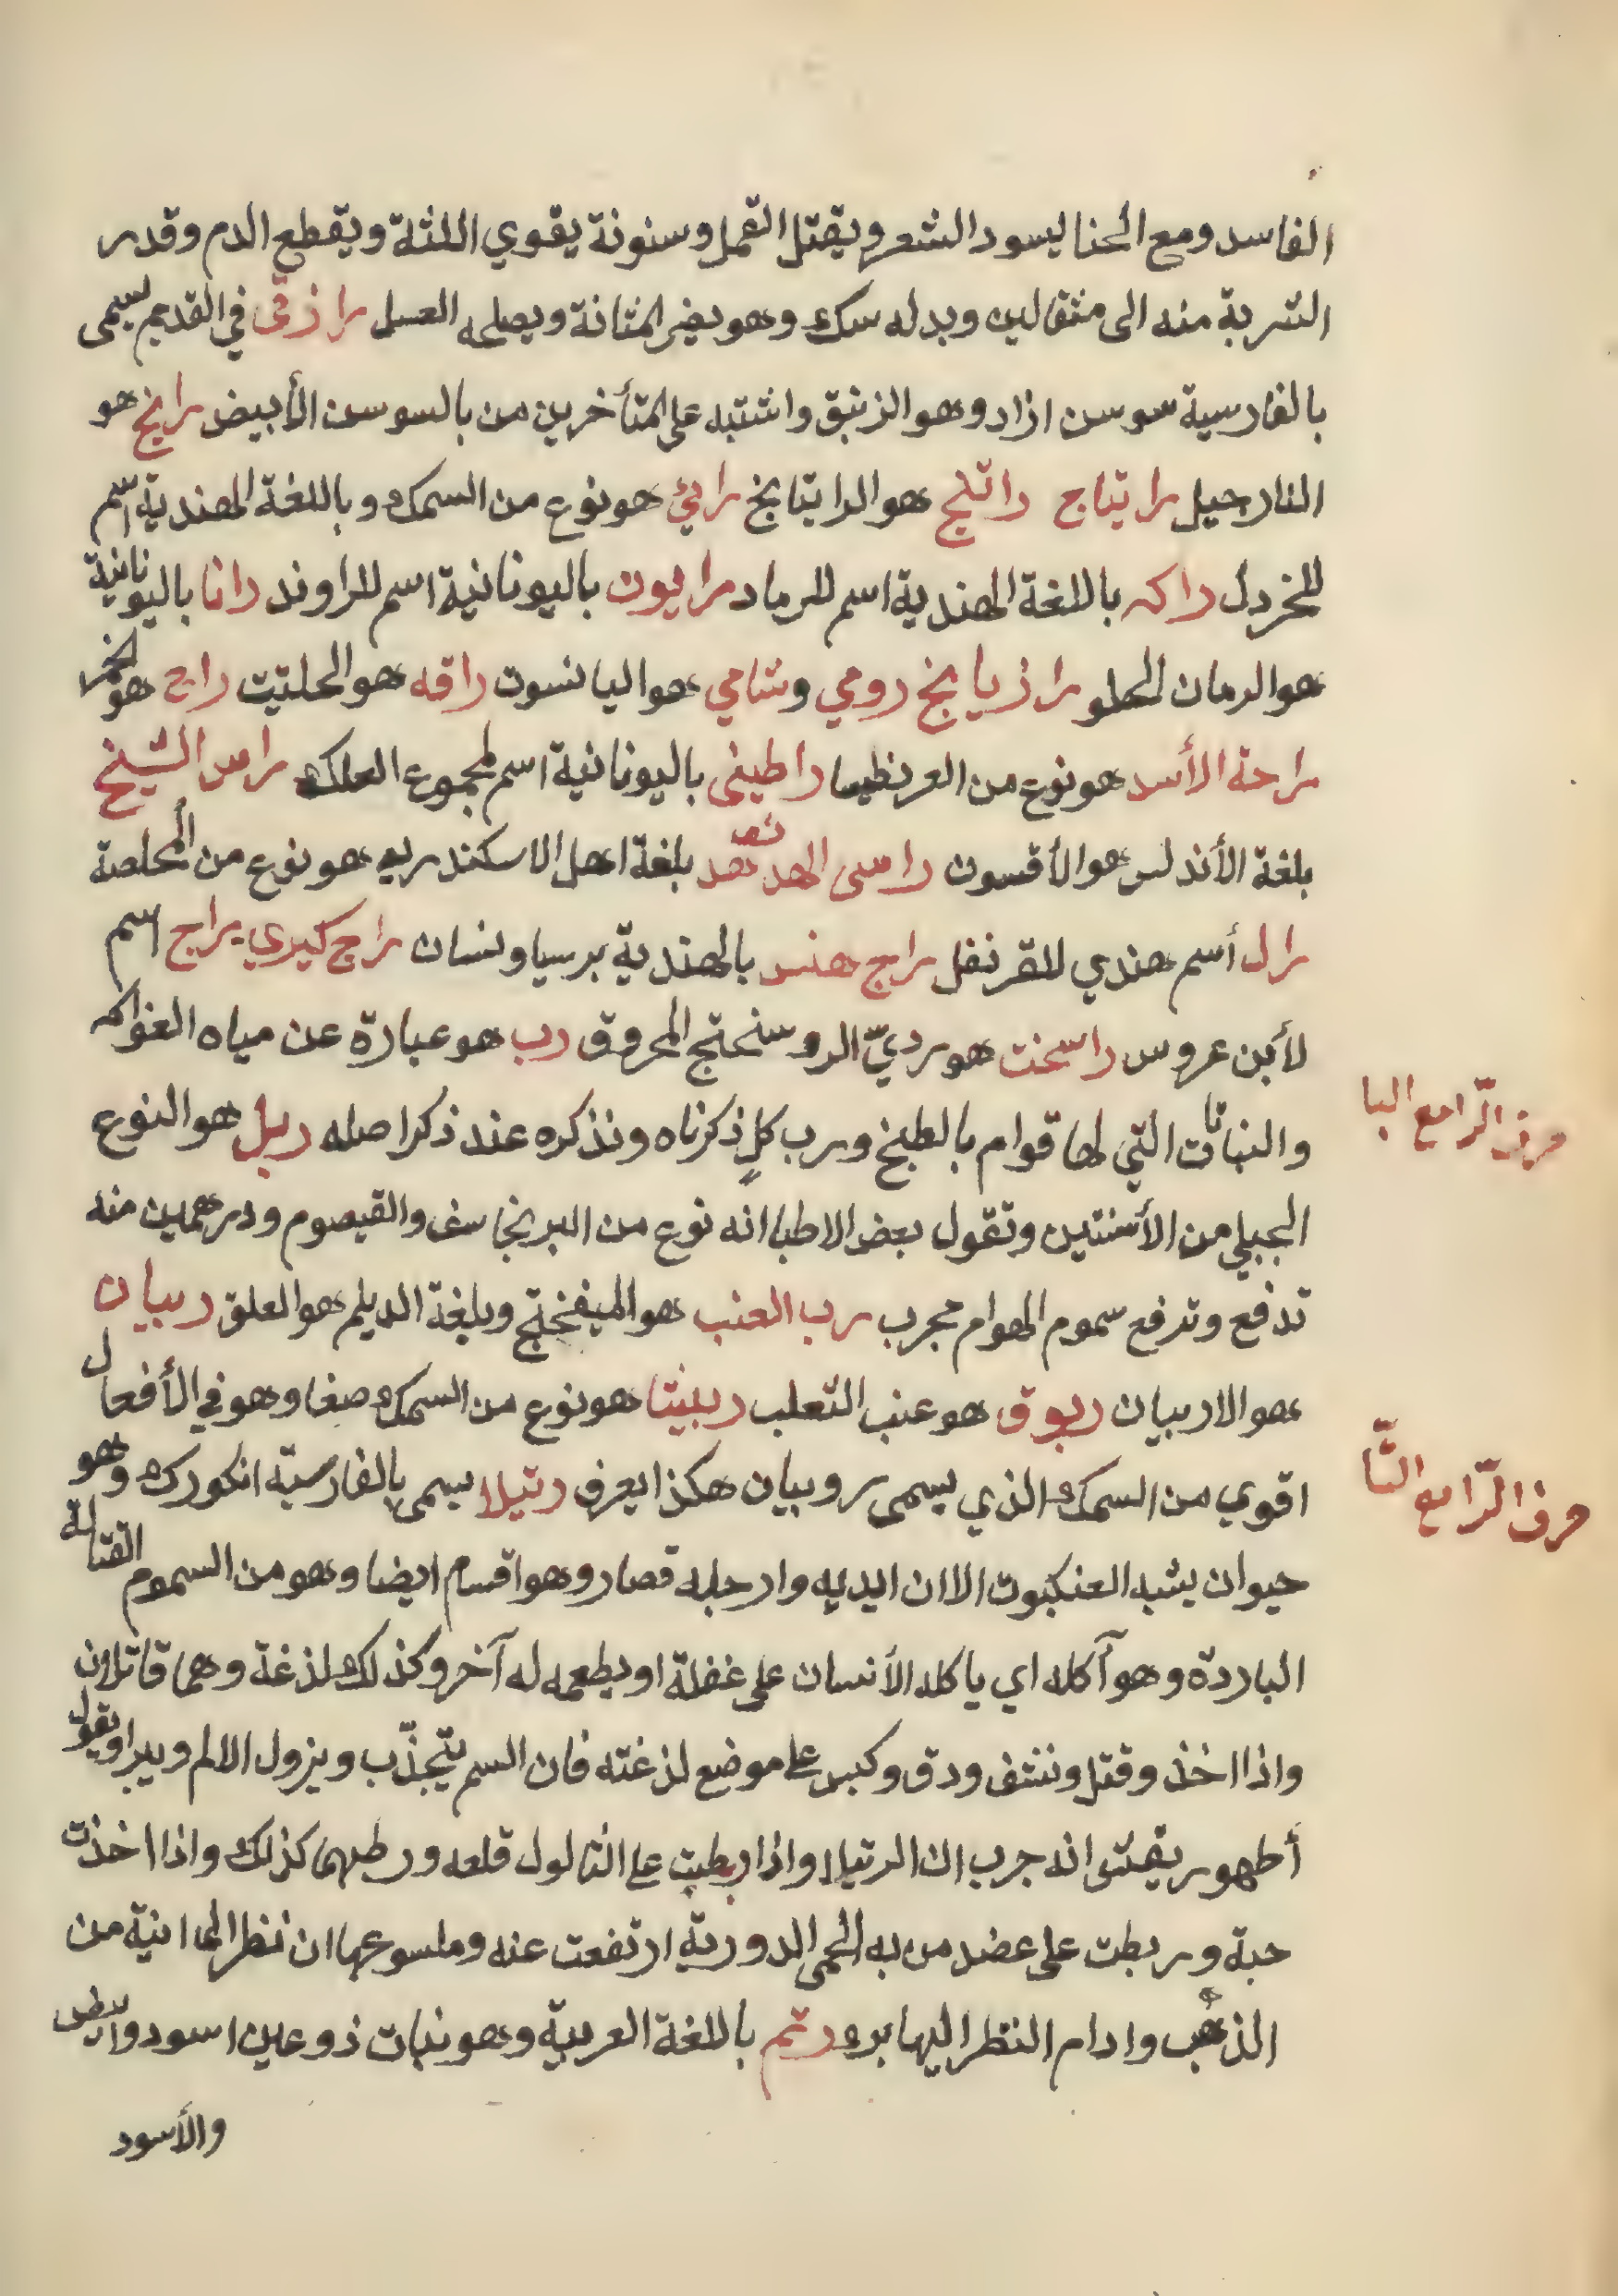 الفاسد ومع الحنا يسود الشعر ويقتل القمل وسنونة يقوي اللثة ويقطع الدم وقدر
الشربة منه الى مثقالين وبدله سك وهو يضر المثانة ويصلحه العسل رازقى في القديم يسمى
بالفارسية سوسن ازاد وهو الزنبق واشتبه على المتأخرين من بالسوسن الأبيض رانج هو
النارجيل راتياج راتلج هو الراتيانج رائي هو نوع من السمك وباللغة الهندية اسم
للخردل راكه باللغة الهندية اسم للرماد رايون باليونانية اسم للراوند رانا باليونانية
هو الرمان الحلو رازيانج رومي وشامي هو اليانسون راقه هو الحلتيت راح هو الخمر
راحة الأسد هو نوع من العرطنيسا راطينى باليونانية اسم لمجموع العلك راس الشيخ
بلغة الأندلس هو الأقسون راسى الهدهد بلغة اهل الاسكندريه هو نوع من المخلصة
رال أسم هندي للقرنفل راج هنس بالهندية برسياوشان راج كيري راج اسم
لأبن عروس راسخت هو رديّ الروسختج المحروق رب هو عبارة عن مياه الفواكه
والنباتات التي لها قوام بالطبخ ورب كلٍ ذكرناه ونذكره عند ذكر اصله ربل هو النوع
الجبلي من الأفسنتين وتقول بعض الاطبا انه نوع من البرنجاسف والقيصوم ودرهمين منه
تدفع وترفع سموم الهوام مجرب رب العنب هو الميفختج وبلغة الديلم هو العلق ربيان
هو الاربيان ربوق هو عنب الثعلب ربيثا هو نوع من السمك صغا وهو في الأفعال
اقوي من السمك الذي يسمى روبيان هكذا يعرف رتيلا يسمى بالفارسية انكورك وهو
حيوان يشبه العنكبوت الا ان ايديه وارجله قصار وهو اقسام ايضا وهو من السموم القتالة
الباردة وهو آكله اي ياكله الأنسان على غفلة او يطعمه له آخر وكذلك لذغة وهما قاتلان
واذا اخذ وقتل ونشف ودق وكبس على موضع لذغته فان السم يتجذّب ويزول الالم ويبرا ويقول
أطهور يقتى انه جرب ان الرتيلا واذا ربطت على الثالول قلعه ورطبها كذلك واذا اخذت
حبة وربطت على عضد من به الحمى الدورية ارتفعت عنه وملسوعها ان نظر الى انية من
الذهب وادام النظر اليها برء رتم باللغة العربية وهو نبات ذو عين اسود وابيض
والأسود
حرف الرّا مع البا
حرف الرّا مع التّا